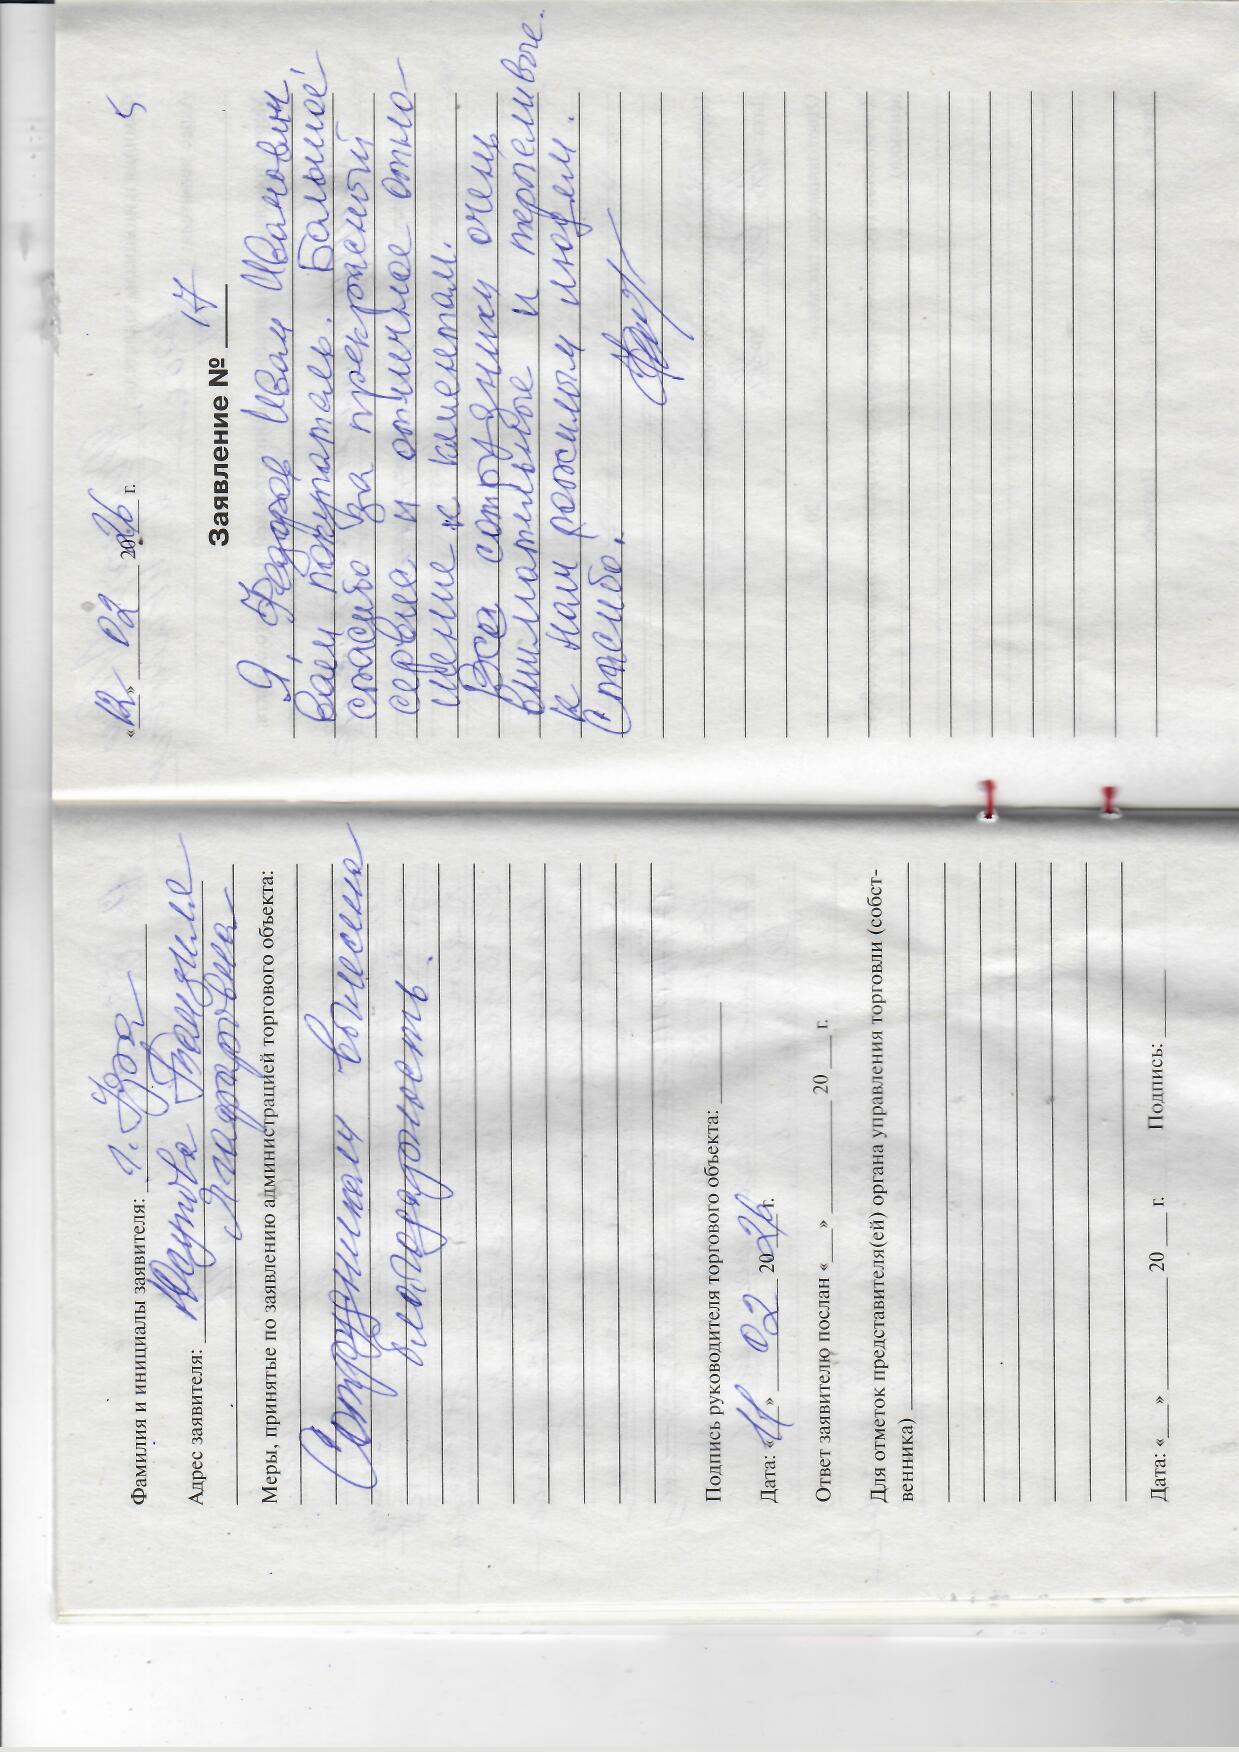 Фамилия и инициалы заявителя: г. Уфа
Адрес заявителя: Якупова Фаизиля
Ягафаровна
Меры, принятые по заявлению администрацией торгового объекта:
Сотрудникам вынесена
благодарность.
Подпись руководителя торгового объекта:
Дата: «11» 02 2026 г.
Ответ заявителю послан «___» ______ 20 ___ г.
Для отметок представителя(ей) органа управления торговли (собст-
венника)
Дата: «___» ______ 20 ___ г. Подпись:
5
«12» 02 2026 г.
Заявление № 17
Я, Федоров Иван Иванович,
ваш покупатель. Большое
спасибо за прекрасный
сервис и отличное отно-
шение к клиентам.
Все сотрудники очень
внимательные и терпеливые
к нам пожилым людям.
Спасибо.